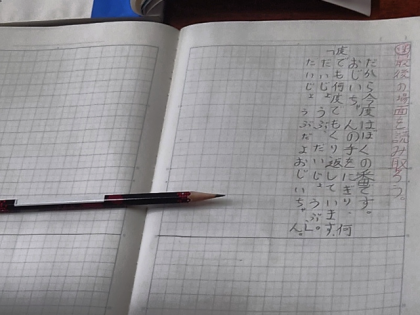 最後の場面を読み取ろう
だから今度はぼくの番です。
おじいちゃんの手をにぎり、何
度でも何度でもくり返しています。
「だいじょうぶ、だいじょうぶ。」
だいじょうぶだよおじいちゃん。